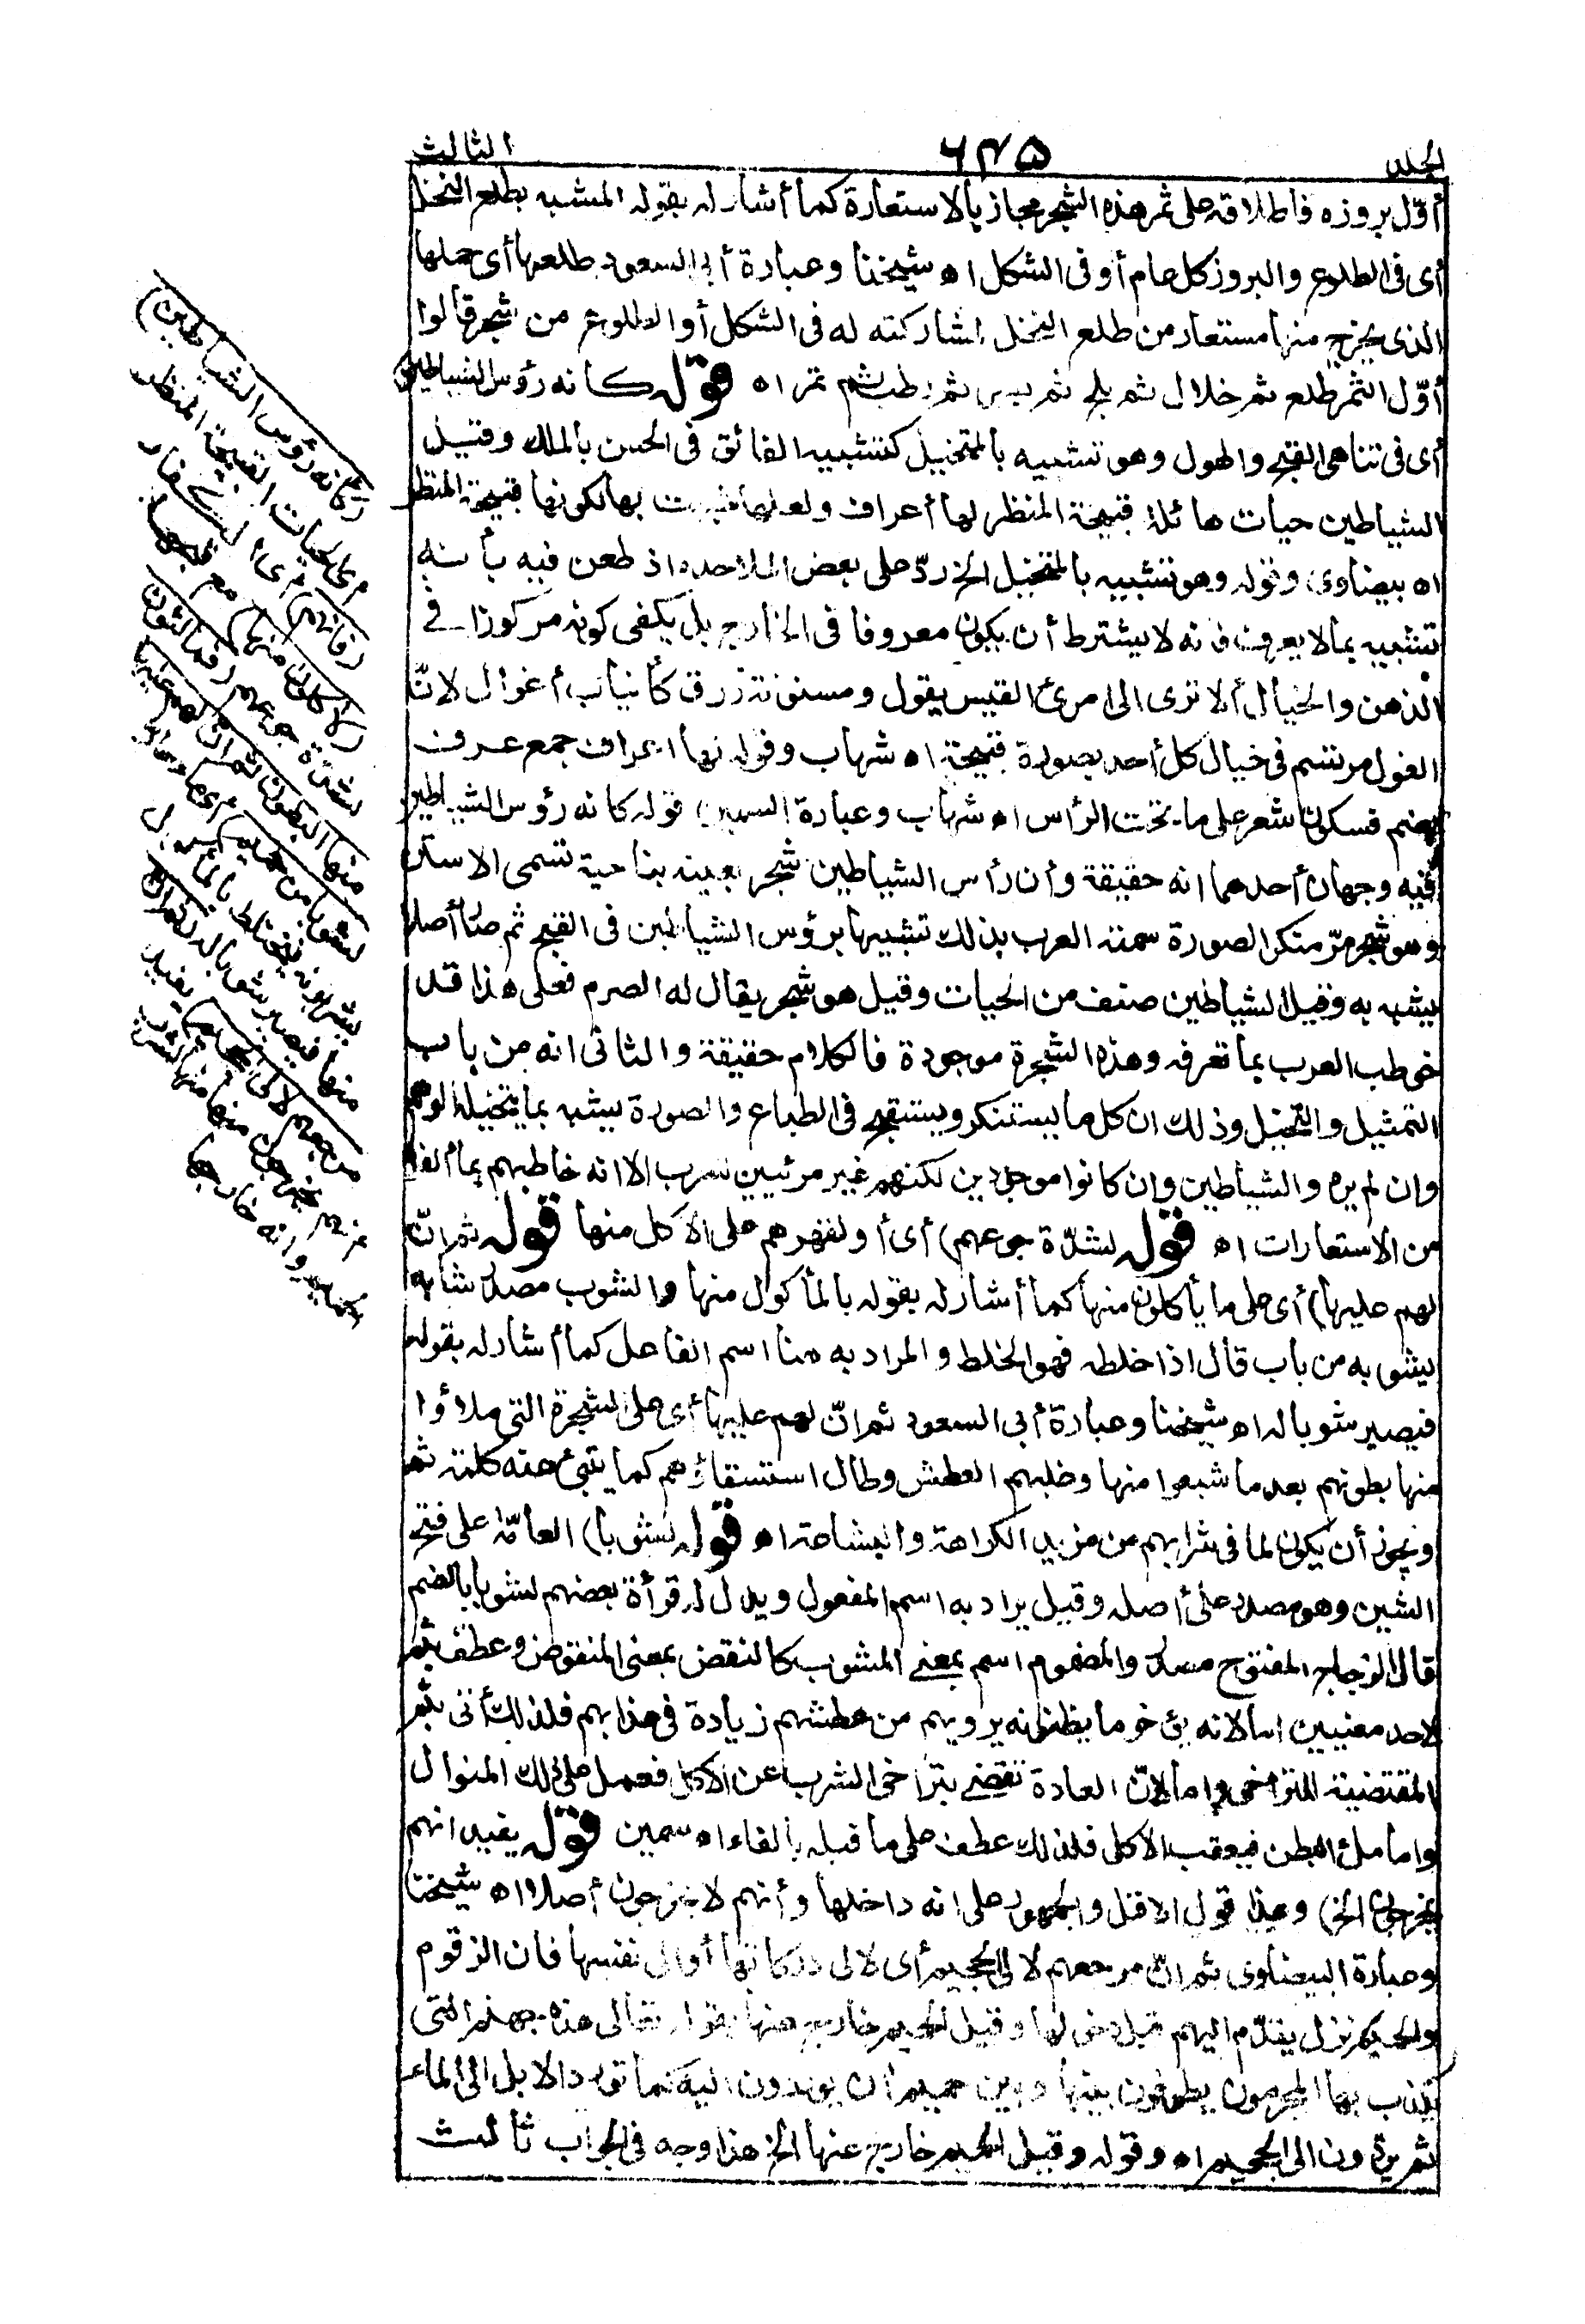 الجلد ٦٣٥ الثالث
أوّل بروزه فاطلاقه على ثمر هذه الشجر مجاز بالاستعارة كما أشار له بقوله المشبه بطلع النخل
أى فى الطلوع والبروز كل عام أو فى الشكل اه شيخنا وعبارة أبى السعود طلعها أى حملها
الذى يخرج منها مستعار من طلع النخل لمشاركته له فى الشكل أو الطلوع من الشجر قالوا
أوّل التمر طلع ثم خلال ثم بلح ثم بسر ثم رطب ثم تمر اه قوله كانه رؤس الشياطين
أى فى تناهى القبح والهول وهو تشبيه بالمتخيل كتشبيه الفائق فى الحسن بالملك وقيل
الشياطين حيات هائلة قبيحة المنظر لها أعراف ولعلها سميت بها لكونها قبيحة المنظر
اه بيضاوى وقوله وهو تشبيه بالمتخيل الخ ردّ على بعض الملاحدة اذ طعن فيه بأنه
تشبيه بما لا يعرف فانه لا يشترط أن يكون معروفا فى الخارج بل يكفى كونه مركوزا فى
الذهن والخيال ألا ترى الى امرئ القيس يقول ومسنونة زرق كأنياب أغوال لانّ
الغول مرتسم فى خيال كل أحد بصورة قبيحة اه شهاب وقوله لها اعراف جمع عرف
بضم فسكون شعر على ما تحت الرأس اه شهاب وعبارة السمين قوله كانه رؤس الشياطين
فيه وجهان أحدهما انه حقيقة وأن رأس الشياطين شجر بعينه بناحية تسمى الاستن
وهو شجر مرّ منكر الصورة سمته العرب بذلك تشبيها برؤس الشياطين فى القبح ثم صار أصلا
يشبه به وقيل الشياطين صنف من الحيات وقيل هو شجر يقال له الصرم فعلى هذا قد
خوطب العرب بما تعرفه وهذه الشجرة موجودة فالكلام حقيقة والثانى انه من باب
التمثيل والتخيل وذلك ان كل ما يستنكر ويستقبح فى الطباع والصورة يشبه بما يتخيله الوهم
وان لم يره والشياطين وان كانوا موجودين لكنهم غير مرئيين للعرب الا انه خاطبهم بما ألفوه
من الاستعارات اه قوله لشدّة جوعهم) أى أو لقهرهم على الاكل منها قوله ثم انّ
لهم عليها) أى على ما يأكلون منها كما أشار له بقوله بالمأكول منها والشوب مصدر شابه
يشوبه من باب قال اذا خلطه فهو الخلط والمراد به هنا اسم الفاعل كما أشار له بقوله
فيصير شوبا له اه شيخنا وعبارة أبى السعود ثم انّ لهم عليها أى على الشجرة التى ملاؤا
منها بطونهم بعد ما شبعوا منها وغلبهم العطش وطال استسقاؤهم كما ينبئ عنه كلمة ثم
ويجوز أن يكون لما فى شرابهم من مزيد الكراهة والبشاعة اه قوله لشوبا) العامّة على فتح
الشين وهو مصدر على أصله وقيل يراد به اسم المفعول ويدل له قرأة بعضهم لشوبا بالضم
قال الزجاج المفتوح مصدر والمضموم اسم بمعنى المشوب كالنقض بمعنى المنقوض وعطف بثم
لاحد معنيين اما لانه يؤخر ما يظن انه يرويهم من عطشهم زيادة فى عذابهم فلذلك أتى بثم
المقتضية للتراخى واما لانّ العادة تقضى بتراخى الشرب عن الاكل فعمل على ذلك المنوال
واما ملء البطن فيعقب الاكل فلذلك عطف على ما قبله بالفاء اه سمين قوله يفيد انهم
يخرجون الخ) وهذا قول الاقل والجمهور على انه داخلها وأنهم لا يخرجون أصلا اه شيخنا
وعبارة البيضاوى ثم انّ مرجعهم لالى الجحيم أى لالى دركاتها أو الى نفسها فان الزقوم
والحميم نزل يقدّم اليهم قبل دخولها وقيل الحميم خارج عنها لقوله تعالى هذه جهنم التى
يكذب بها المجرمون يطوفون بينها وبين حميم آن يوردون اليه كما تورد الابل الى الماء
ثم يردّون الى الجحيم اه وقوله وقيل الحميم خارج عنها الخ هذا وجه فى الجواب ثالث
(كانه رؤس الشياطين)
أى الحيات القبيحة المنظر
(فانهم) أى الكفار
(لآكلون منها) مع قبحها
لشدّة جوعهم (فمالئون
منها البطون ثم ان لهم عليها
لشوبا من حميم) أى ماء حار
يشربونه فيختلط بالمأكول
منها فيصير شوبا له (ثم ان
مرجعهم لالى الجحيم) يفيد
انهم يخرجون منها لشرب
الحميم وانه خارجها